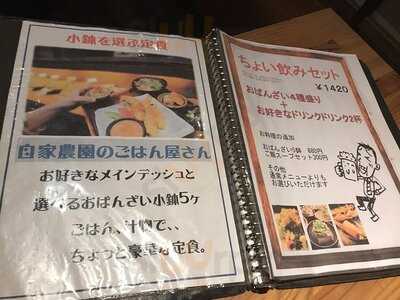 小鉢を選ぶ定食
自家農園のごはん屋さん
お好きなメインデッシュと
選べるおばんざい小鉢5ヶ
ごはん、汁物で、、
ちょっと豪華な定食。
ちょい飲みセット
￥1420
おばんざい4種盛り
+
お好きなドリンクドリンク2杯
お料理の追加
おばんざい5鉢 880円
ご飯スープセット300円
その他
通常メニューよりも
お選びいただけます